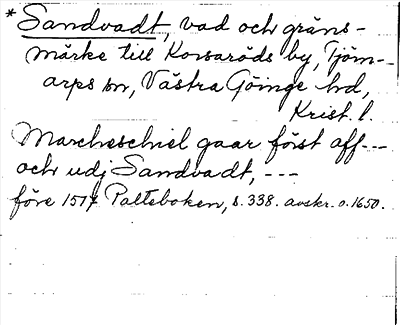 * Sandvadt, vad och gräns-
märke till Korsaröds by, Tjörn-
arps sn, Västra Göinge hd,
Krist. l.
Marcheschiel gaar först aff --
och udj Sandvadt, ---
före 1517 Palteboken, s. 338. avskr. o. 1650.